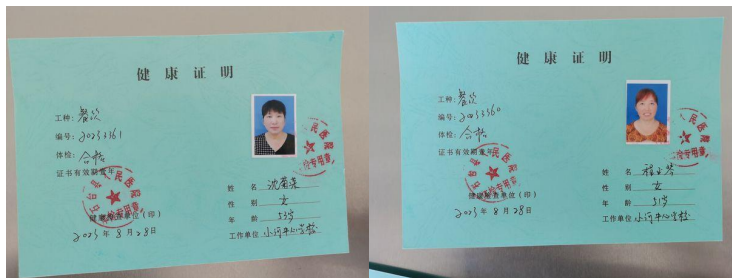 健康证明
工种：餐饮
编号：20233161
体检：合格
证书有效期壹年
健康检查单位（印）
2023年8月28日
姓 名
性 别 女
年 龄 53岁
工作单位 小河中心学校
健康证明
工种：餐饮
编号：20233160
体检：合格
证书有效期壹年
健康检查单位（印）
2023年8月28日
姓 名
性 别 女
年 龄 51岁
工作单位 小河中心学校